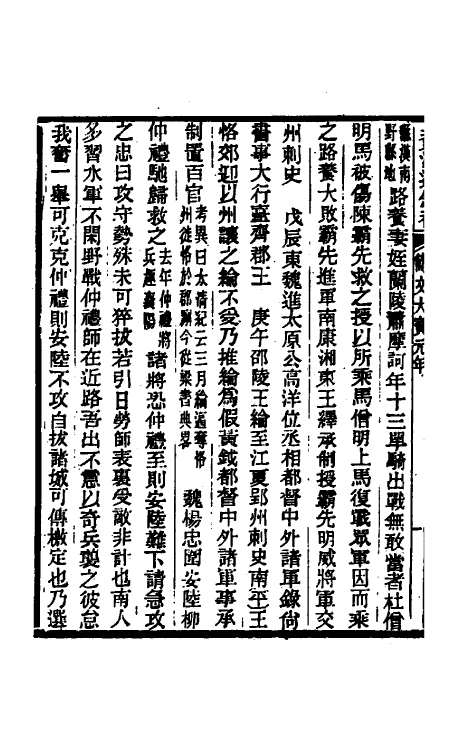 龍漢南
野縣地路養妻姪蘭陵蕭摩訶年十三單騎出戰無敢當者杜僧
明馬被傷陳霸先救之授以所乘馬僧明上馬復戰眾軍因而乘
之路養大敗霸先進軍南康湘東王繹承制授霸先明威將軍交
州刺史　戊辰東魏進太原公高洋位丞相都督中外諸軍錄尚
書事大行臺齊郡王　庚午邵陵王綸至江夏郢州刺史南平王
恪郊迎以州讓之綸不受乃推綸為假黃鉞都督中外諸軍事承
制置百官考異曰太清紀云三月綸逼奪恪
州徙恪於郡廨今從梁書典畧　魏楊忠圍安陸柳
仲禮馳歸救之去年仲禮將
兵趣襄陽諸將恐仲禮至則安陸難下請急攻
之忠曰攻守勢殊未可猝拔若引日勞師表裏受敵非計也南人
多習水軍不閑野戰仲禮師在近路吾出不意以奇兵襲之彼怠
我奮一舉可克克仲禮則安陸不攻自拔諸城可傳檄定也乃選